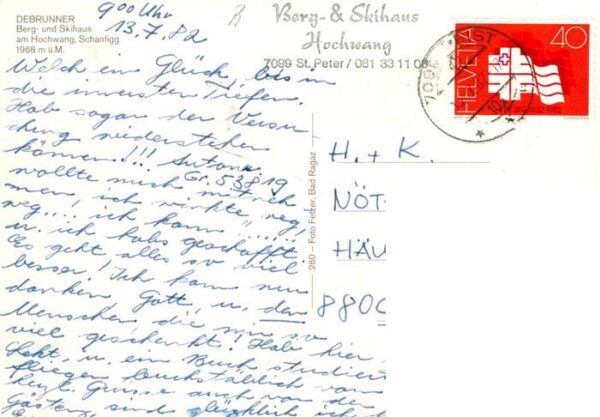 DEBRUNNER
Berg- und Skihaus
am Hochwang, Schanfigg
1968 m ü.M.
9 00 Uhr
13.7.82
Berg- & Skihaus
Hochwang
7099 St. Peter / 081 33 11 08
HELVETIA
40
Welch ein Glück bis in
die innersten Tiefen.
Hab sogar der Versu-
chung widerstehen
können!!!
wollte mich mitneh-
men! ich winkte weg!
weg.... ich kann
u. ich habs geschafft.
Es geht alles so viel
besser! Ich kann nur
danken Gott u. den
Menschen die mir so
viel geschenkt. Hab hier
u. ein Buch studiert
fliegen buchstäblich
Grüsse auch von den
Gästen, sind glücklich
260 – Foto Fetzer, Bad Ragaz
H. + K.
NÖT
HÄU
880